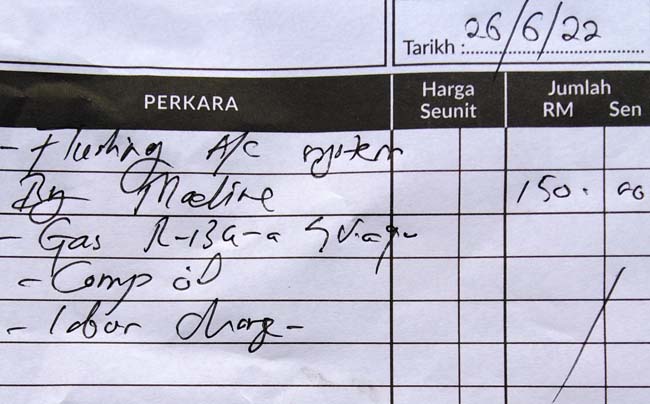 Tarikh : 26/6/22
PERKARA Harga Seunit Jumlah RM Sen
- Flushing A/C system
By Machine 150. 00
- Gas R-134-a
- Comp oil
- labor charge